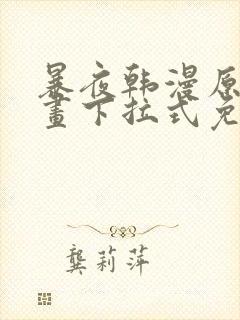 暴夜韩漫原
畫下拉式免
龚莉萍